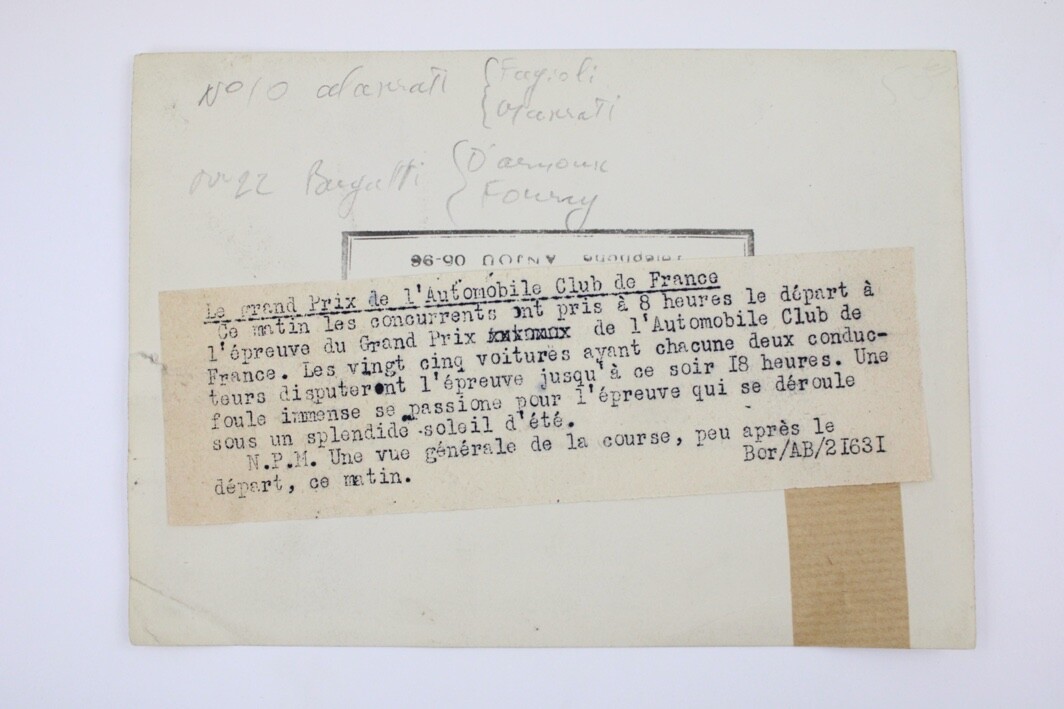 No 10 Maserati { Fagioli
{ Maserati
No 22 Bugatti { D'arnoux
{ Fourny
Téléphone ANJOU 05-96
Le grand Prix de l'Automobile Club de France
Ce matin les concurrents ont pris à 8 heures le départ à
l'épreuve du Grand Prix de l'Automobile Club de
France. Les vingt cinq voitures ayant chacune deux conduc-
teurs disputeront l'épreuve jusqu'à ce soir I8 heures. Une
foule immense se passione pour l'épreuve qui se déroule
sous un splendide soleil d'été.
N.P.M. Une vue générale de la course, peu après le
départ, ce matin. Bor/AB/2I63I